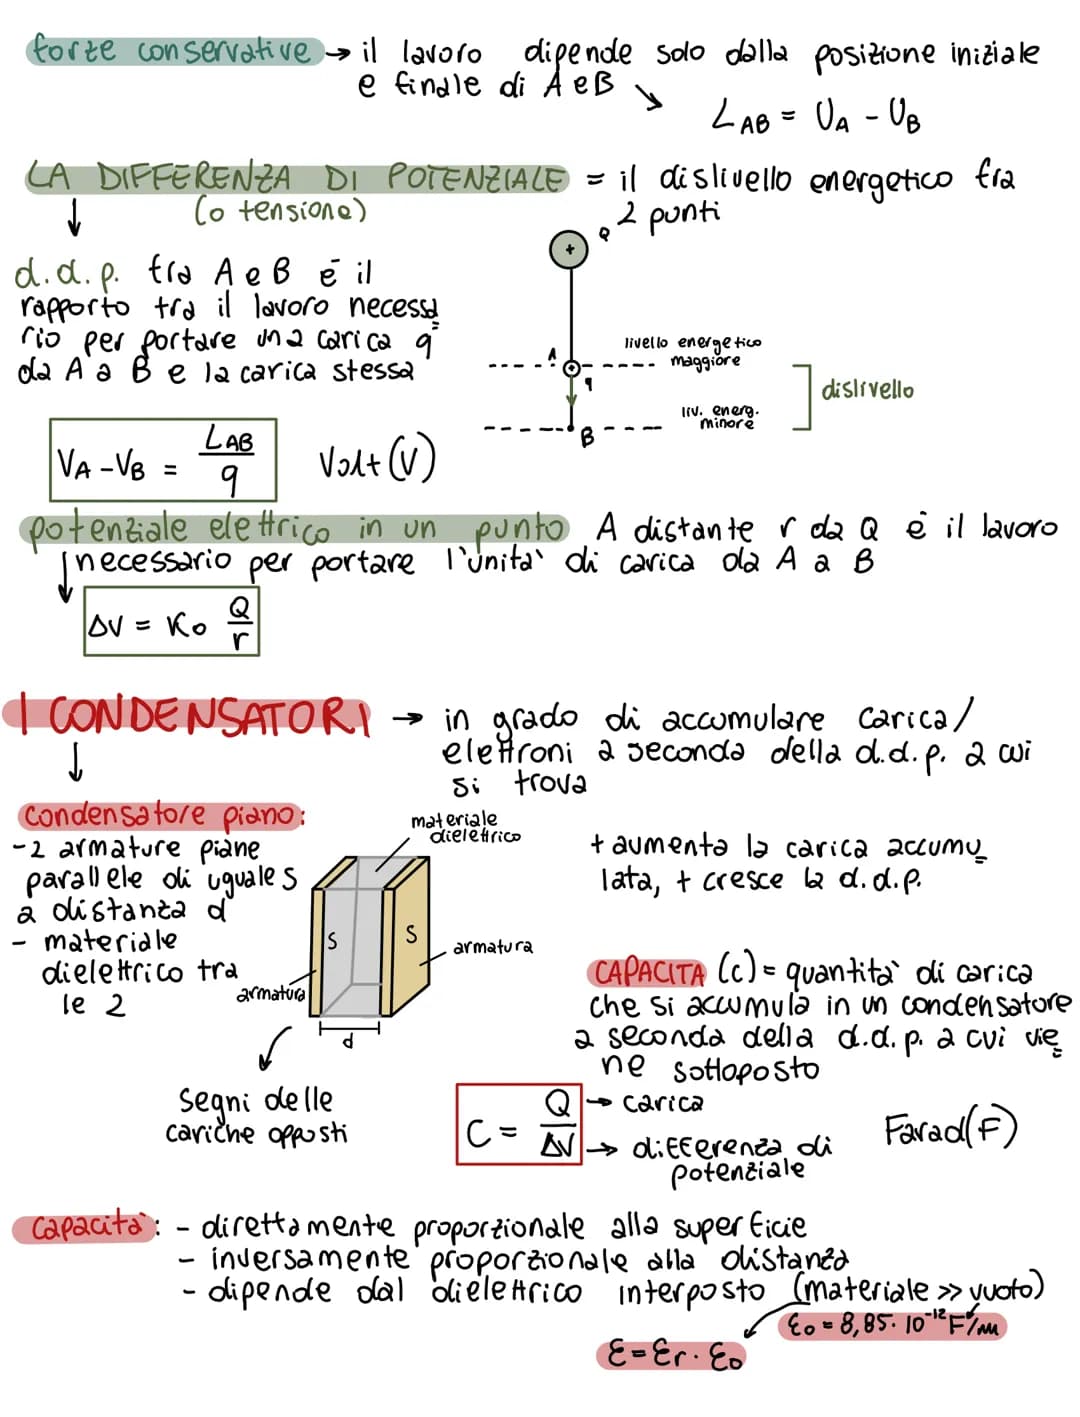 forze conservative → il lavoro dipende solo dalla posizione iniziale
e finale di A e B
L AB = UA - UB
LA DIFFERENZA DI POTENZIALE = il dislivello energetico fra
(o tensione)
2 punti
Q
+
d.d.p. tra A e B è il
rapporto tra il lavoro necessa
rio per portare una carica q
da A a B e la carica stessa
A
q
B
livello energetico
maggiore
liv. energ.
minore
dislivello
VA - VB = LAB / q
Volt (V)
potenziale elettrico in un punto A distante r da Q è il lavoro
necessario per portare l'unita' di carica da A a B
ΔV = Ko Q / r
I CONDENSATORI → in grado di accumulare carica/
elettroni a seconda della d.d.p. a cui
si trova
condensatore piano:
- 2 armature piane
parallele di uguale s
a distanza d
- materiale
dielettrico tra
le 2
materiale
dielettrico
S
S
armatura
armatura
d
segni delle
cariche opposti
+ aumenta la carica accumu
lata, + cresce la d.d.p.
CAPACITA (c) = quantita' di carica
che si accumula in un condensatore
a seconda della d.d.p. a cui vie
ne sottoposto
C = Q / ΔV
→ carica
→ differenza di
potenziale
Farad (F)
capacita': - direttamente proporzionale alla superficie
- inversamente proporzionale alla distanza
- dipende dal dielettrico interposto (materiale >> vuoto)
εo = 8,85 · 10⁻¹² F/m
ε = εr · εo